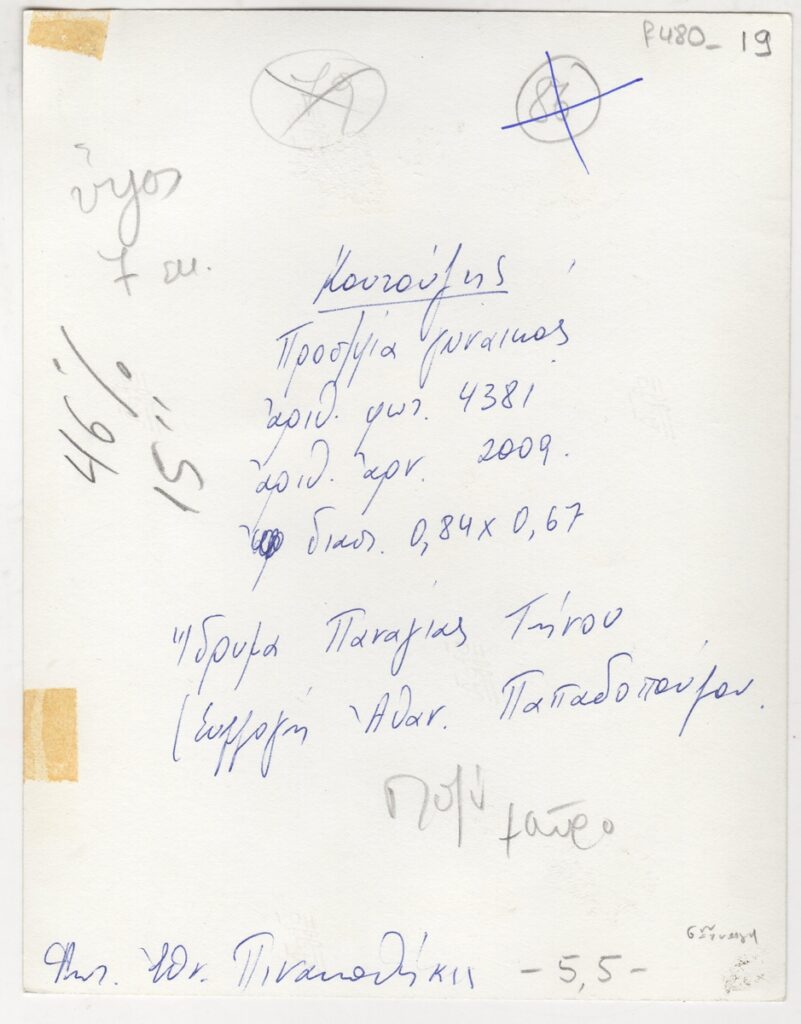 P480_ 19
79
83
ὕψος
7 εκ.
Κουτούζης
Προσ/φία γυναικός
ἀριθ. φωτ. 4381
ἀριθ. ἀρν. 2009.
διαστ. 0,84 x 0,67
46%
15
Ἵδρυμα Παναγίας Τήνου
(Συλλογή Ἀθαν. Παπαδοπούλου.
πολύ μαῦρο
Φωτ. Ἐθν. Πινακοθήκης - 5,5 -